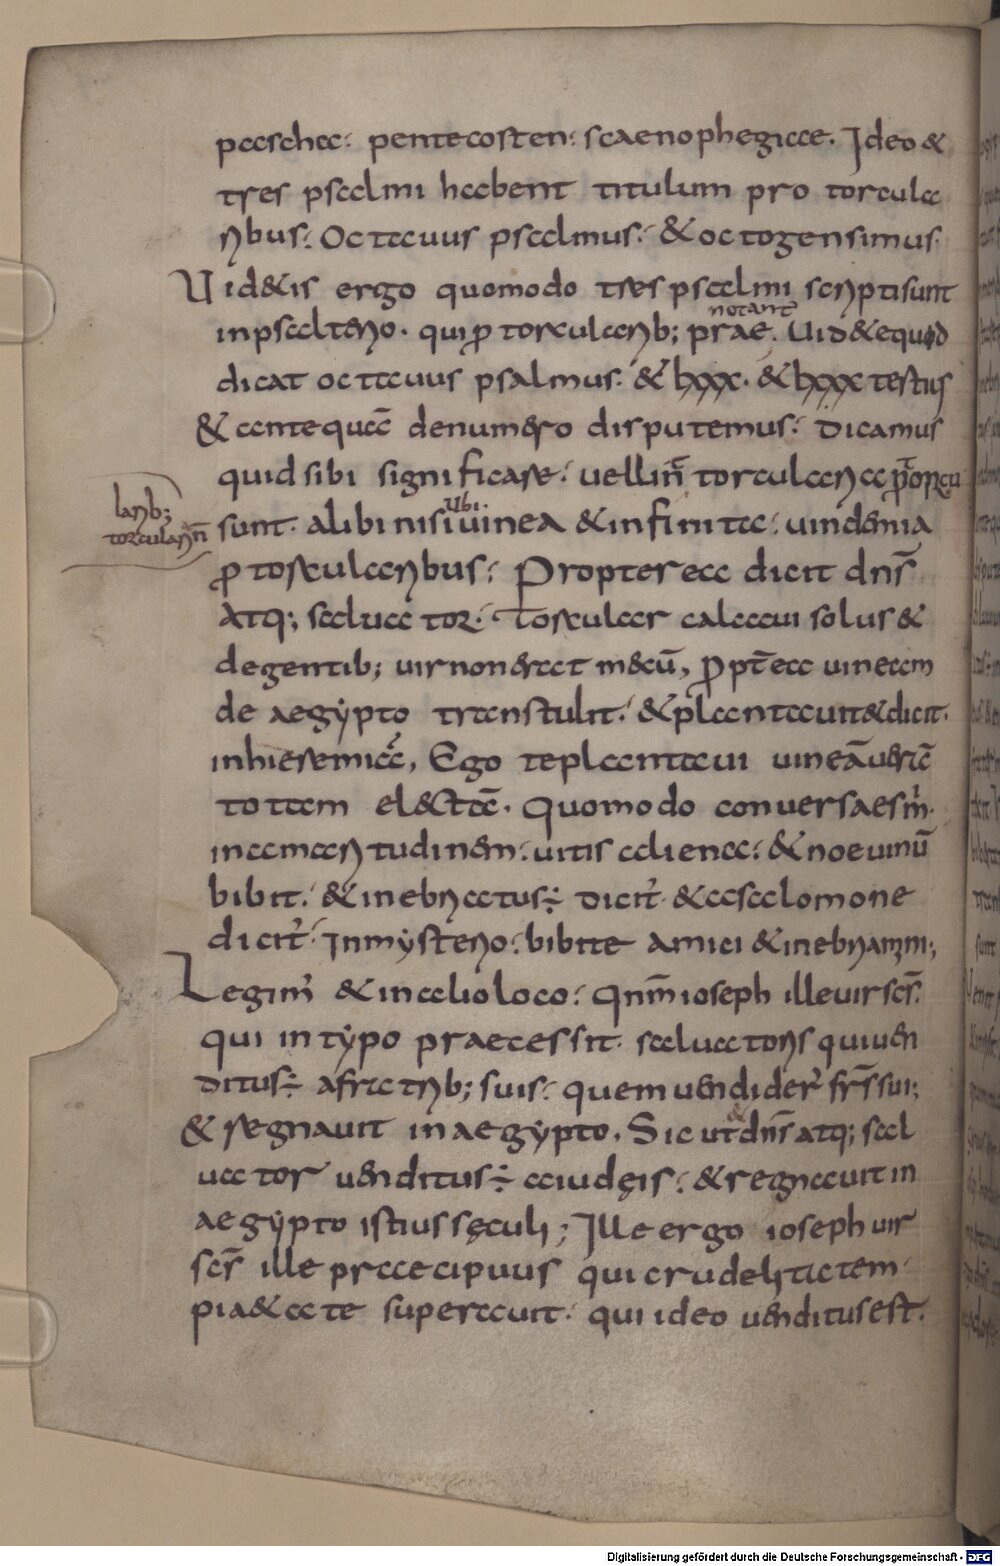 pascha: pentecosten: scaenophegiae. Ideo &
tres psalmi habent titulum pro torcula
ribus: Octauus psalmus: & octogensimus.
Uid&is ergo quomodo tres psalmi scriptisunt
notant̄
inpsalterio. qui ꝓ torcularib; prae. Uid&equod
dicat octauus psalmus: & lxxx. & lxxx tertius
& antequā denumero disputemus: Dicamus
quid sibi significare: uellin̄ torcularea
larib;
torcularia n̄
ubi
sunt. alibi nisi uinea & infinita: uindemia
ꝓ torcularibus: Propterea dicit dn̄s
atq; saluator: Torcular calcaui solus &
degentib; uir non erat mecū, ꝓpt̄ea uineam
de aegypto transtulit: & plantauit & dicit.
inhieremia, Ego teplantaui uineāuerā
totam el&tā. Quomodo conuersaesm̄.
inamaritudinem: uitis aliena: & noe uinū
bibit: & inebriatus÷ dicit̄ & asalomone
dicit̄: Inmysterio: bibite amici & inebriamini;
Legim̄ & inalioloco: Qn̄m ioseph ille uir sc̄s:
qui in typo praecessit saluatoris quiuen
ditus÷ afratrib; suis: quem uendider̄ fr̄s sui;
& regnauit in aegypto. Sic ut & dn̄s atq; sal
uator uenditus÷ aiudęis: & regnauit in
aegypto istius sęculi; Ille ergo ioseph uir
sc̄s ille praecipuus qui crudelitatem
pi&ate superauit: qui ideo uenditus est.
Digitalisierung gefördert durch die Deutsche Forschungsgemeinschaft - DFG